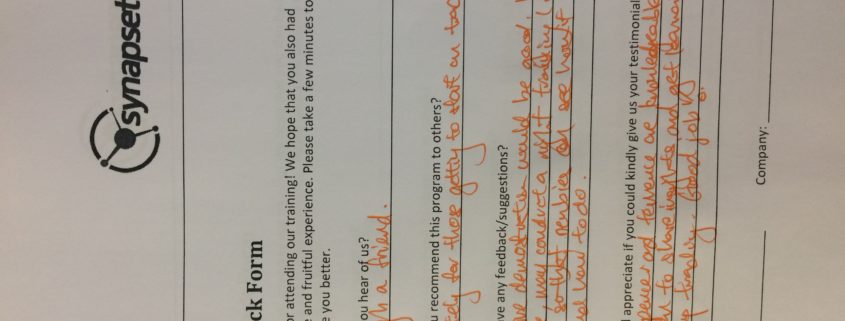 synapset
ck Form
or attending our training! We hope that you also had
e and fruitful experience. Please take a few minutes to
e you better.
ou hear of us?
a friend.
u recommend this program to others?
for those getting to start on
ve any feedback/suggestions?
demonstration would be good.
may conduct a night trading
so that newbies can see how it
and how to do.
l appreciate if you could kindly give us your testimonial
and Terrance are knowledgeable
to share insights and get
trading. Good job
Company: